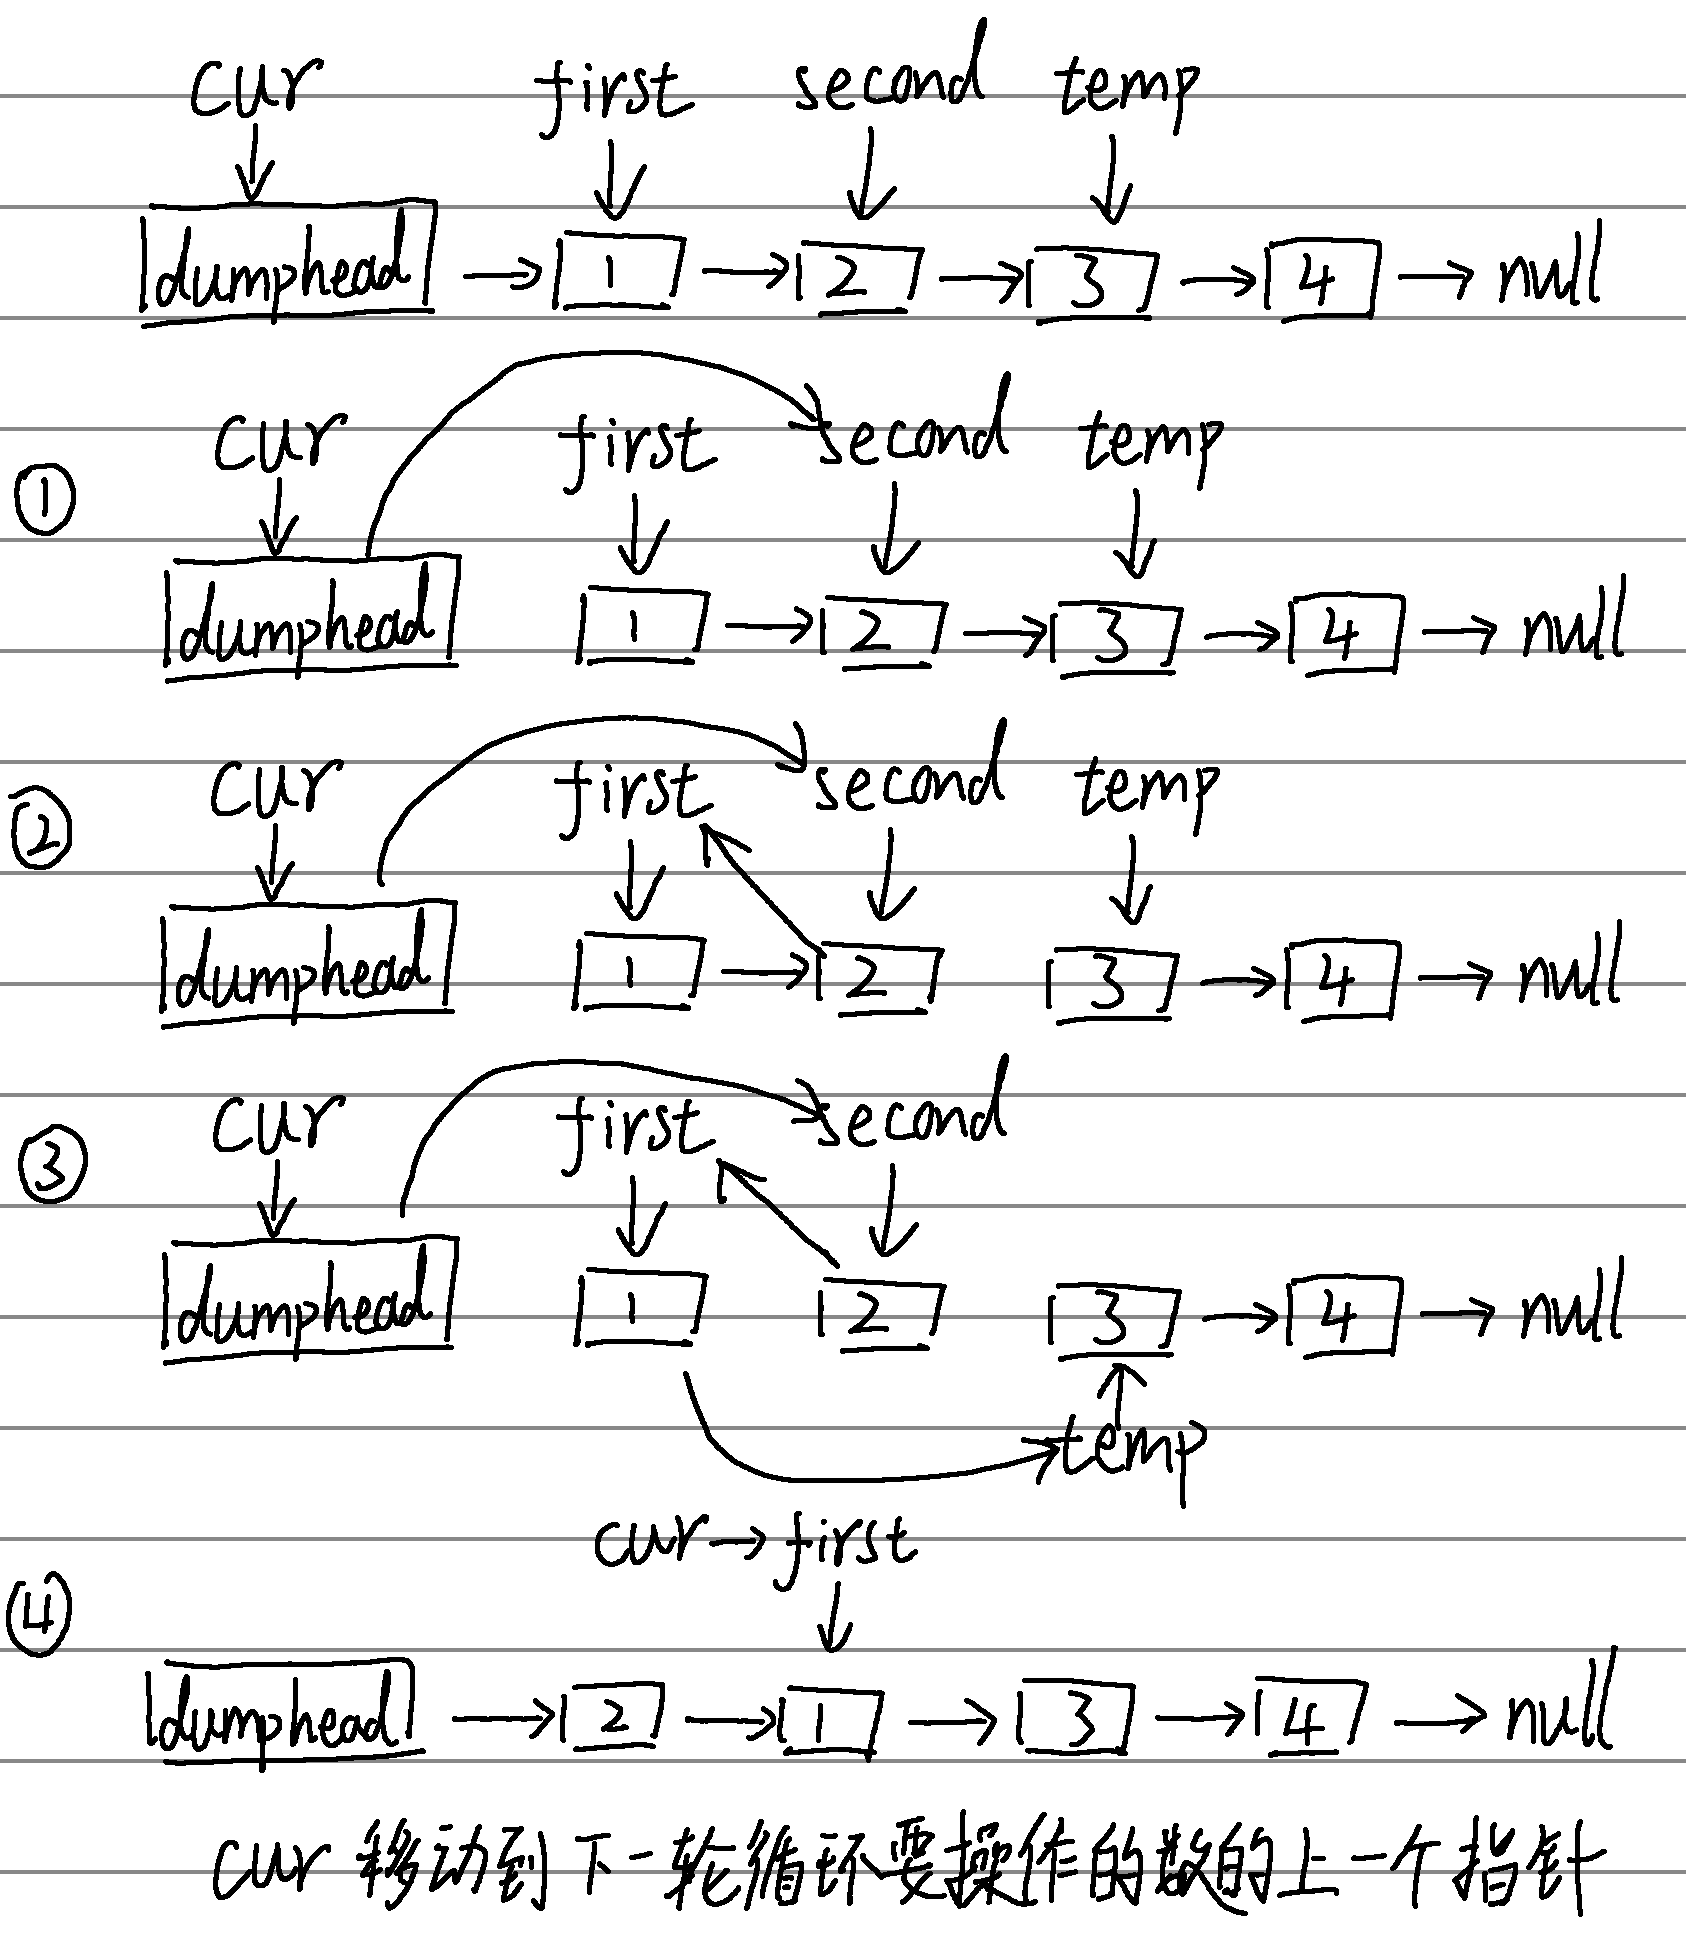 cur first second temp
dumphead → 1 → 2 → 3 → 4 → null
① cur first second temp
dumphead 1 → 2 → 3 → 4 → null
② cur first second temp
dumphead 1 → 2 3 → 4 → null
③ cur first second
dumphead 1 2 3 → 4 → null
temp
cur → first
④
dumphead → 2 → 1 → 3 → 4 → null
cur 移动到下一轮循环要操作的数的上一个指针